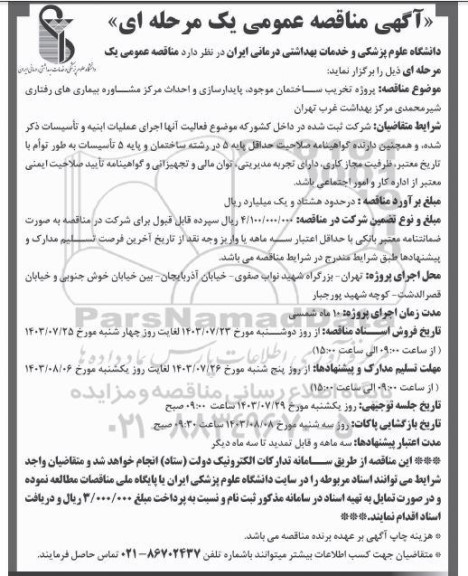 «آگهی مناقصه عمومی یک مرحله ای»
دانشگاه علوم پزشکی و خدمات بهداشتی درمانی ایران
دانشگاه علوم پزشکی و خدمات بهداشتی درمانی ایران در نظر دارد مناقصه عمومی یک
مرحله ای ذیل را برگزار نماید:
موضوع مناقصه: پروژه تخریب ساختمان موجود، پایدارسازی و احداث مرکز مشاوره بیماری های رفتاری
شیرمحمدی مرکز بهداشت غرب تهران
شرایط متقاضیان: شرکت ثبت شده در داخل کشور که موضوع فعالیت آنها اجرای عملیات ابنیه و تأسیسات ذکر
شده، و همچنین دارنده گواهینامه صلاحیت حداقل پایه ۵ در رشته ساختمان و پایه ۵ تأسیسات به طور توأم با
تاریخ معتبر، ظرفیت مجاز کاری، دارای تجربه مدیریتی، توان مالی و تجهیزاتی و گواهینامه تأیید صلاحیت ایمنی
معتبر از اداره کار و امور اجتماعی باشد.
مبلغ برآورد مناقصه : درحدود هشتاد و یک میلیارد ریال
مبلغ و نوع تضمین شرکت در مناقصه: ۴/۱۰۰/۰۰۰/۰۰۰ ریال سپرده قابل قبول برای شرکت در مناقصه به صورت
ضمانتنامه معتبر بانکی با حداقل اعتبار سه ماهه یا واریز وجه نقد از تاریخ آخرین فرصت تسلیم مدارک و
پیشنهادها طبق شرایط مندرج در شرایط مناقصه می باشد.
محل اجرای پروژه: تهران- بزرگراه شهید نواب صفوی- خیابان آذربایجان- بین خیابان خوش جنوبی و خیابان
قصرالدشت- کوچه شهید پورجبار
مدت زمان اجرای پروژه: ۱۰ ماه شمسی
تاریخ فروش اسناد مناقصه: از روز دوشنبه مورخ ۱۴۰۳/۰۷/۲۳ لغایت روز چهار شنبه مورخ ۱۴۰۳/۰۷/۲۵
( از ساعت ۰۹:۰۰ الی ساعت ۱۵:۰۰)
مهلت تسلیم مدارک و پیشنهادها: از روز پنج شنبه مورخ ۱۴۰۳/۰۷/۲۶ لغایت روز یکشنبه مورخ ۱۴۰۳/۰۸/۰۶
( از ساعت ۰۹:۰۰ الی ساعت ۱۵:۰۰)
تاریخ جلسه توجیهی: روز یکشنبه مورخ ۱۴۰۳/۰۷/۲۹ ساعت ۰۹:۰۰ صبح
تاریخ بازگشایی پاکات: روز سه شنبه مورخ ۱۴۰۳/۰۸/۰۸ ساعت ۰۹:۳۰ صبح
مدت اعتبار پیشنهادها: سه ماهه و قابل تمدید تا سه ماه دیگر
*** این مناقصه از طریق سامانه تدارکات الکترونیک دولت (ستاد) انجام خواهد شد و متقاضیان واجد
شرایط می توانند اسناد مربوطه را در سایت دانشگاه علوم پزشکی ایران یا پایگاه ملی مناقصات مطالعه نموده
و در صورت تمایل به تهیه اسناد در سامانه مذکور ثبت نام و نسبت به پرداخت مبلغ ۳/۰۰۰/۰۰۰ ریال و دریافت
اسناد اقدام نمایند.***
* هزینه چاپ آگهی بر عهده برنده مناقصه می باشد.
* متقاضیان جهت کسب اطلاعات بیشتر میتوانند باشماره تلفن ۸۶۷۰۲۴۳۷-۰۲۱ تماس حاصل فرمایند.
ParsNamadData